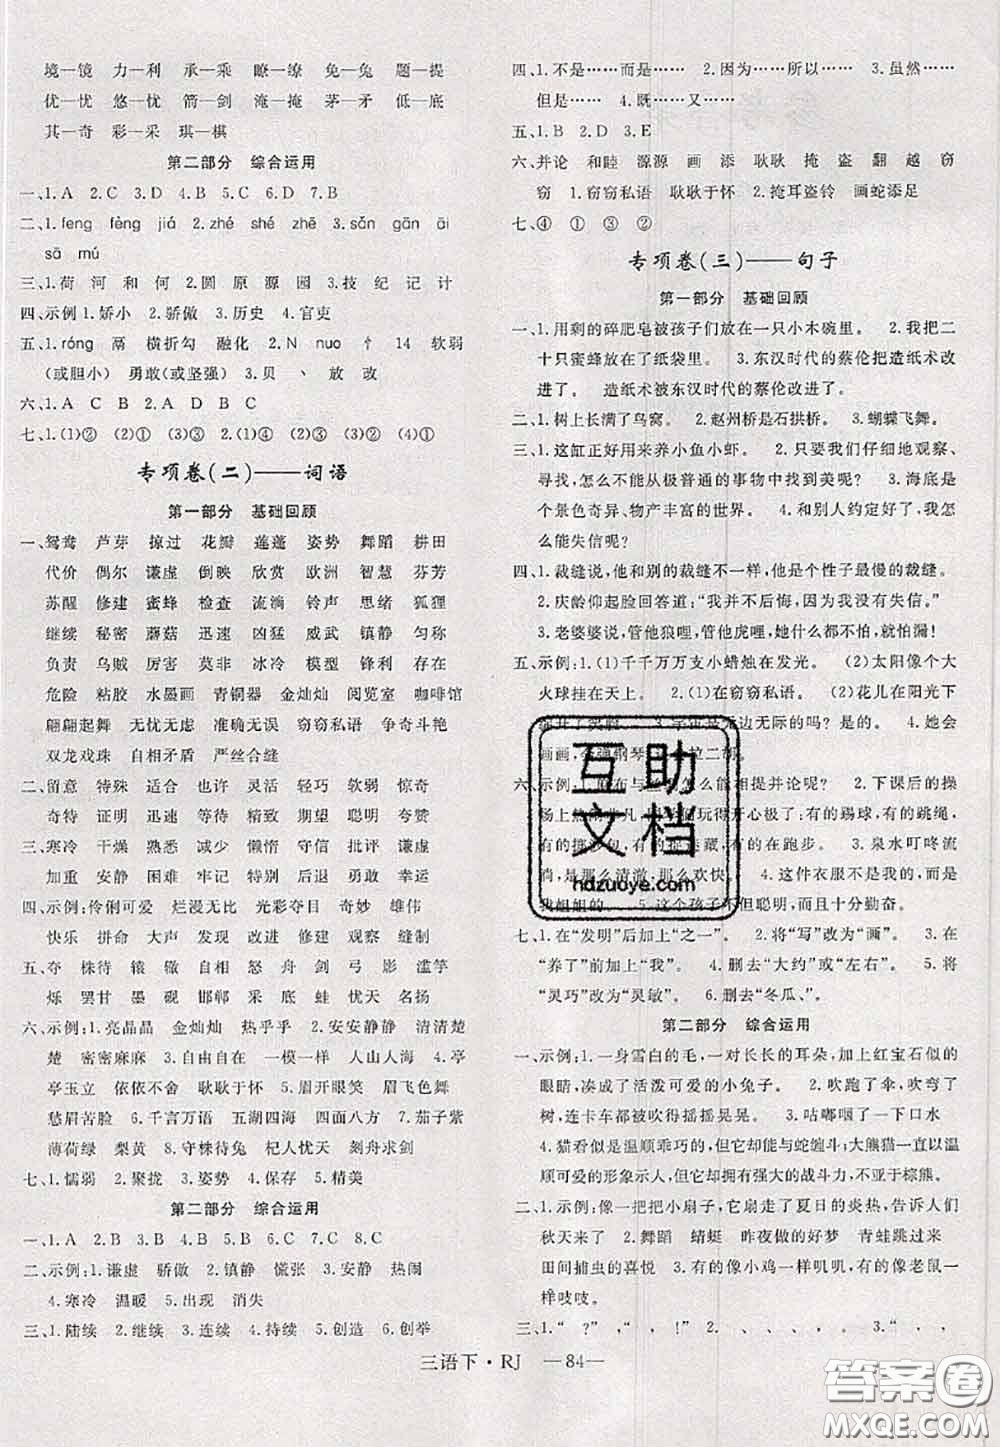 境—镜 力—利 承—乘 瞭—缭 免—兔 题—提
优—忧 悠—忧 箭—剑 淹—掩 茅—矛 低—底
其—奇 彩—采 琪—棋
第二部分 综合运用
一、1.A 2.C 3.D 4.B 5.C 6.D 7.B
二、1.feng fèng jiá 2.zhé shé zhē 3.sǎn gān āi
sā mú
三、1.荷 河 和 何 2.圆 原 源 园 3.技 纪 记 计
四、示例1.娇小 2.骄傲 3.历史 4.官吏
五、1.róng 鬲 横折勾 融化 2.N nuo 忄 14 软弱
(或胆小) 勇敢(或坚强) 3.贝 丶 放 改
六、1.A C B 2.A C B C
七、1.(1)② (2)① 2.(1)④ (2)③ (3)② (4)①
专项卷(二)——词语
第一部分 基础回顾
一、鸳鸯 芦芽 掠过 花瓣 莲蓬 姿势 舞蹈 耕田
代价 偶尔 谦虚 倒映 欣赏 欧洲 智慧 芬芳
苏醒 修建 蜜蜂 检查 流淌 铃声 思绪 狐狸
继续 秘密 蘑菇 迅速 凶猛 威武 镇静 匀称
负责 乌贼 厉害 莫非 冰冷 模型 锋利 存在
危险 粘胶 水墨画 青铜器 金灿灿 阅览室 咖啡馆
翩翩起舞 无忧无虑 准确无误 窃窃私语 争奇斗艳
双龙戏珠 自相矛盾 严丝合缝
二、留意 特殊 适合 也许 灵活 轻巧 软弱 惊奇
奇特 证明 迅速 等待 精致 期望 聪明 夸赞
三、寒冷 干燥 熟悉 减少 懒惰 守信 批评 谦虚
加重 安静 困难 牢记 特别 后退 勇敢 幸运
四、示例:伶俐可爱 烂漫无比 光彩夺目 奇妙 雄伟
快乐 拼命 大声 发现 改进 修建 观察 缝制
五、夺 株待 辕 辙 自相 怒 舟 剑 弓 影 滥竽
烁 罢甘 墨 砚 邯郸 采 底 蛙 忧天 名扬
六、示例:1.亮晶晶 金灿灿 热乎乎 2.安安静静 清清楚
楚 密密麻麻 3.自由自在 一模一样 人山人海 4.亭
亭玉立 依依不舍 耿耿于怀 5.眉开眼笑 眉飞色舞
愁眉苦脸 6.千言万语 五湖四海 四面八方 7.茄子紫
薄荷绿 梨黄 8.守株待兔 杞人忧天 刻舟求剑
七、1.懦弱 2.聚拢 3.姿势 4.保存 5.精美
第二部分 综合运用
一、1.B 2.B 3.B 4.C 5.B 6.B 7.C 8.C
二、示例:1.谦虚 骄傲 2.镇静 慌张 3.安静 热闹
4.寒冷 温暖 5.出现 消失
三、1.陆续 2.继续 3.连续 4.持续 5.创造 6.创举
四、1.不是……而是…… 2.因为……所以…… 3.虽然……
但是…… 4.既……又……
五、1.B 2.D 3.E
六、并论 和睦 源源 画 添 耿耿 掩 盗 翻 越 窃
窃 1.窃窃私语 耿耿于怀 2.掩耳盗铃 画蛇添足
七、④ ① ③ ②
专项卷(三)——句子
第一部分 基础回顾
一、1.用剩的碎肥皂被孩子们放在一只小木碗里。 2.我把二
十只蜜蜂放在了纸袋里。 3.东汉时代的蔡伦把造纸术改
进了。 造纸术被东汉时代的蔡伦改进了。
二、1.树上长满了鸟窝。 2.赵州桥是石拱桥。 3.蝴蝶飞舞。
三、1.这缸正好用来养小鱼小虾。 2.只要我们仔细地观察、寻
找,怎么不能从极普通的事物中找到美呢? 3.海底是个
景色奇异、物产丰富的世界。 4.和别人约定好了,我怎
么能失信呢?
四、1.裁缝说,他和别的裁缝不一样,他是个性子最慢的裁缝。
2.庆龄仰起脸回答道:“我并不后悔,因为我没有失信。”
3.老婆婆说,管他狼哩,管他虎哩,她什么都不怕,就怕漏!
五、示例:1.(1)千千万万支小蜡烛在发光。 (2)太阳像个大
火球挂在天上。 2.(1)在窃窃私语。 (2)花儿在阳光下
宇宙是无边无际的吗?是的。 4.她会
画画,会弹钢琴 拉二胡。
六、示例:1. 怎么能相提并论呢? 2.下课后的操
场上热闹 玩得开心极了,有的踢球,有的跳绳,
有的 有的在跑步。 3.泉水叮咚流
淌,是那么清澈,那么欢快。 4.这件衣服不是我的,而是
我姐姐的。 5.这个孩子不但聪明,而且十分勤奋。
七、1.在“发明”后加上“之一”。 2.将“写”改为“画”。 3.在
“养了”前加上“我”。 4.删去“大约”或“左右”。 5.将
“灵巧”改为“灵敏”。 6.删去“冬瓜、”。
第二部分 综合运用
一、示例:1.一身雪白的毛,一对长长的耳朵,加上红宝石似的
眼睛,构成了活泼可爱的小兔子。 2.吹跑了伞,吹弯了
树,连卡车都被吹得摇摇晃晃。 3.咕嘟咽了一下口水
4.猫看似是温顺乖巧的,但它却能与蛇缠斗;大熊猫一直以温
顺可爱的形象示人,但它却拥有强大的战斗力,不亚于棕熊。
二、1.示例:像一把把小扇子,它扇走了夏日的炎热,告诉人们
秋天来了 2.舞蹈 蜻蜓 昨夜做的好梦 青蛙就唱起
田间捕虫的喜悦 3.有的像小鸡一样叽叽,有的像老鼠一
样吱吱。
三、1.“ ?” ”,“ , ,” 。 2. , , , 。 3.“ , ”
三语下·RJ —84—
互助
文档
hdzuoye.com
答案卷
MXQE.COM